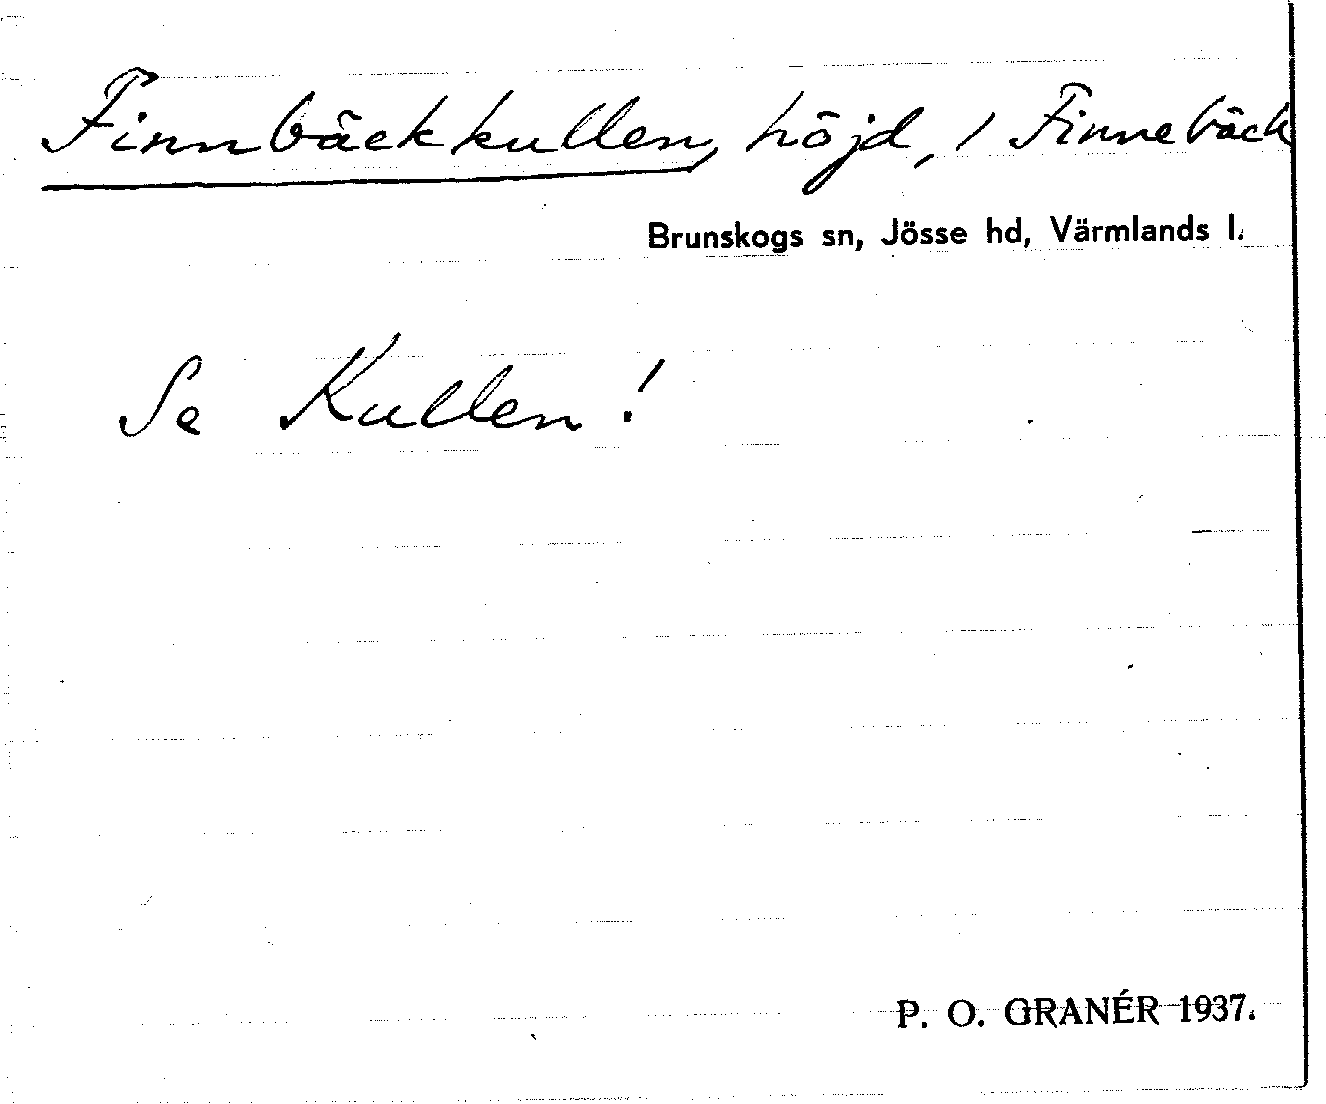 Finnbäckkullen, höjd, / Finnebäck
Brunskogs sn, Jösse hd, Värmlands l.
Se Kullen!
P. O. GRANÉR 1937.